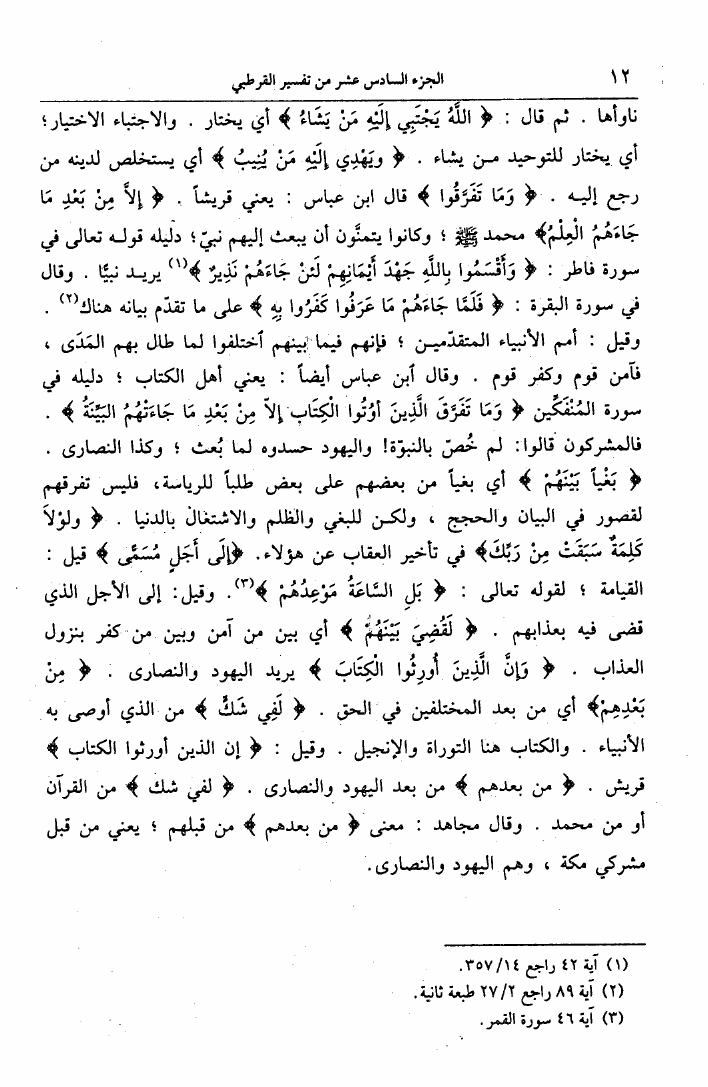 ١٢
الجزء السادس عشر من تفسير القرطبي
ناوأها . ثم قال : ﴿ اللَّهُ يَجْتَبِي إِلَيْهِ مَنْ يَشَاءُ ﴾ أي يختار . والاجتباء الاختيار؛
أي يختار للتوحيد مـن يشاء . ﴿ وَيَهْدِي إِلَيْهِ مَنْ يُنِيبُ ﴾ أي يستخلص لدينه من
رجع إليـه . ﴿ وَمَا تَفَرَّقُوا ﴾ قال ابن عباس : يعني قريشاً . ﴿ إِلاَّ مِنْ بَعْدِ مَا
جَاءَهُمُ الْعِلْمُ﴾ محمد ﷺ ؛ وكانوا يتمنَّون أن يبعث إليهم نبيّ؛ دليله قولـه تعالى في
سورة فاطر : ﴿ وَأَقْسَمُوا بِاللَّهِ جَهْدَ أَيْمَانِهِمْ لَئِنْ جَاءَهُمْ نَذِيرٌ ﴾(١) يريـد نبيًّا . وقال
في سورة البقرة : ﴿ فَلَمَّا جَاءَهُمْ مَا عَرَفُوا كَفَرُوا بِهِ ﴾ على ما تقدّم بيانه هناك(٢) .
وقيل : أمم الأنبياء المتقدّميـن ؛ فإنهم فيما بينهم ٱختلفوا لما طال بهم المَدَى ،
فآمن قوم وكفر قوم . وقال ٱبن عباس أيضاً : يعني أهل الكتاب ؛ دليله في
سورة المُنْفَكِّين ﴿ وَمَا تَفَرَّقَ الَّذِينَ أُوتُوا الْكِتَابَ إِلاَّ مِنْ بَعْدِ مَا جَاءَتْهُمُ البَيِّنَةُ ﴾ .
فالمشركون قالوا: لم خُصّ بالنبوّة! واليهود حسدوه لما بُعث ؛ وكذا النصارى .
﴿ بَغْياً بَيْنَهُمْ ﴾ أي بغياً من بعضهم على بعض طلباً للرياسة، فليس تفرقهم
لقصور في البيان والحجج ، ولكـن للبغي والظلم والاشتغال بالدنيا . ﴿ ولَوْلاَ
كَلِمَةٌ سَبَقَتْ مِنْ رَبِّكَ﴾ في تأخير العقاب عن هؤلاء. ﴿إِلَى أَجَلٍ مُسَمًّى ﴾ قيل :
القيامة ؛ لقوله تعالى : ﴿ بَلِ السَّاعَةُ مَوْعِدُهُمْ ﴾(٣). وقيل: إلى الأجل الذي
قضى فيه بعذابهم . ﴿ لَقُضِيَ بَيْنَهُمْ ﴾ أي بين من آمن وبين من كفر بنزول
العذاب . ﴿ وَإِنَّ الَّذِينَ أُورِثُوا الْكِتَابَ ﴾ يريد اليهود والنصارى . ﴿ مِنْ
بَعْدِهِمْ﴾ أي من بعد المختلفين في الحق . ﴿ لَفِي شَكٍّ ﴾ من الذي أوصى به
الأنبياء . والكتاب هنا التوراة والإنجيل . وقيل : ﴿ إن الذين أورثوا الكتاب ﴾
قريش . ﴿ من بعدهم ﴾ من بعد اليهود والنصارى . ﴿ لفي شك ﴾ من القرآن
أو من محمد . وقال مجاهد : معنى ﴿ من بعدهم ﴾ من قبلهم ؛ يعني من قبل
مشركي مكة ، وهم اليهود والنصارى.
(١) آية ٤٢ راجع ٣٥٧/١٤.
(٢) آية ٨٩ راجع ٢٧/٢ طبعة ثانية.
(٣) آية ٤٦ سورة القمر.